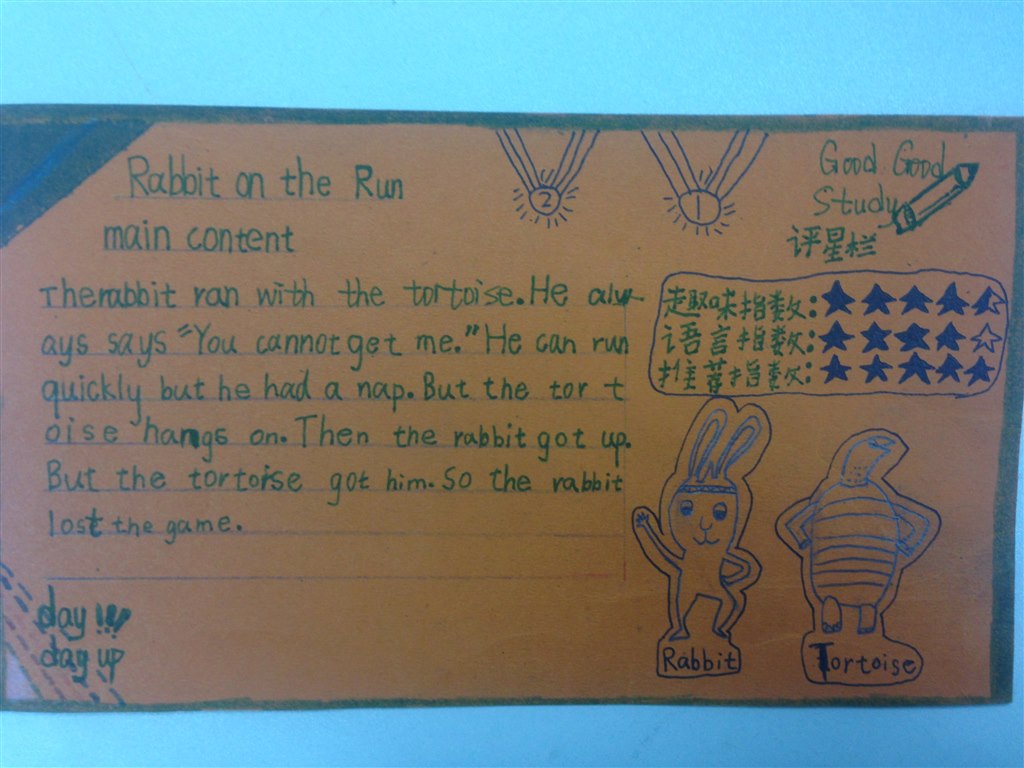 Rabbit on the Run
main content
The rabbit ran with the tortoise. He alw-
ays says "You cannot get me." He can run
quickly but he had a nap. But the tor t
oise hangs on. Then the rabbit got up.
But the tortoise got him. So the rabbit
lost the game.
day !!!
day up
2
1
Good Good
Study
评星栏
趣味指数:
语言指数:
推荐指数:
Rabbit
Tortoise